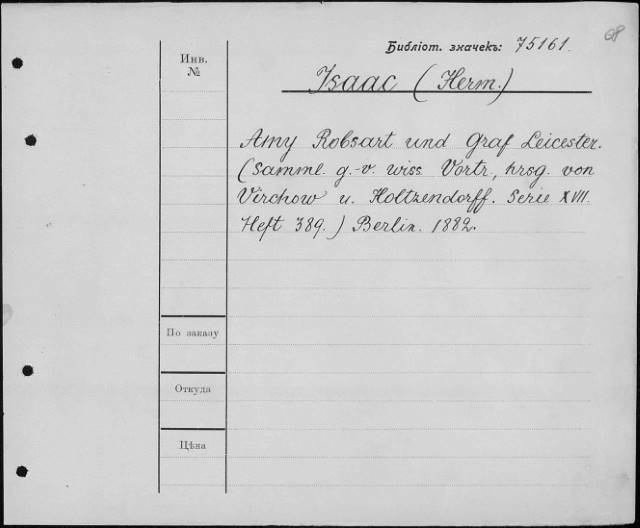 68
Библіот. значекъ: 75161.
Инв.
№
Isaac (Herm.)
Amy Robsart und Graf Leicester.
(Samml. g.-v. wiss. Vortr., hrsg. von
Virchow u. Holtzendorff. Serie XVII.
Heft 389.) Berlin. 1882.
По заказу
Откуда
Цѣна